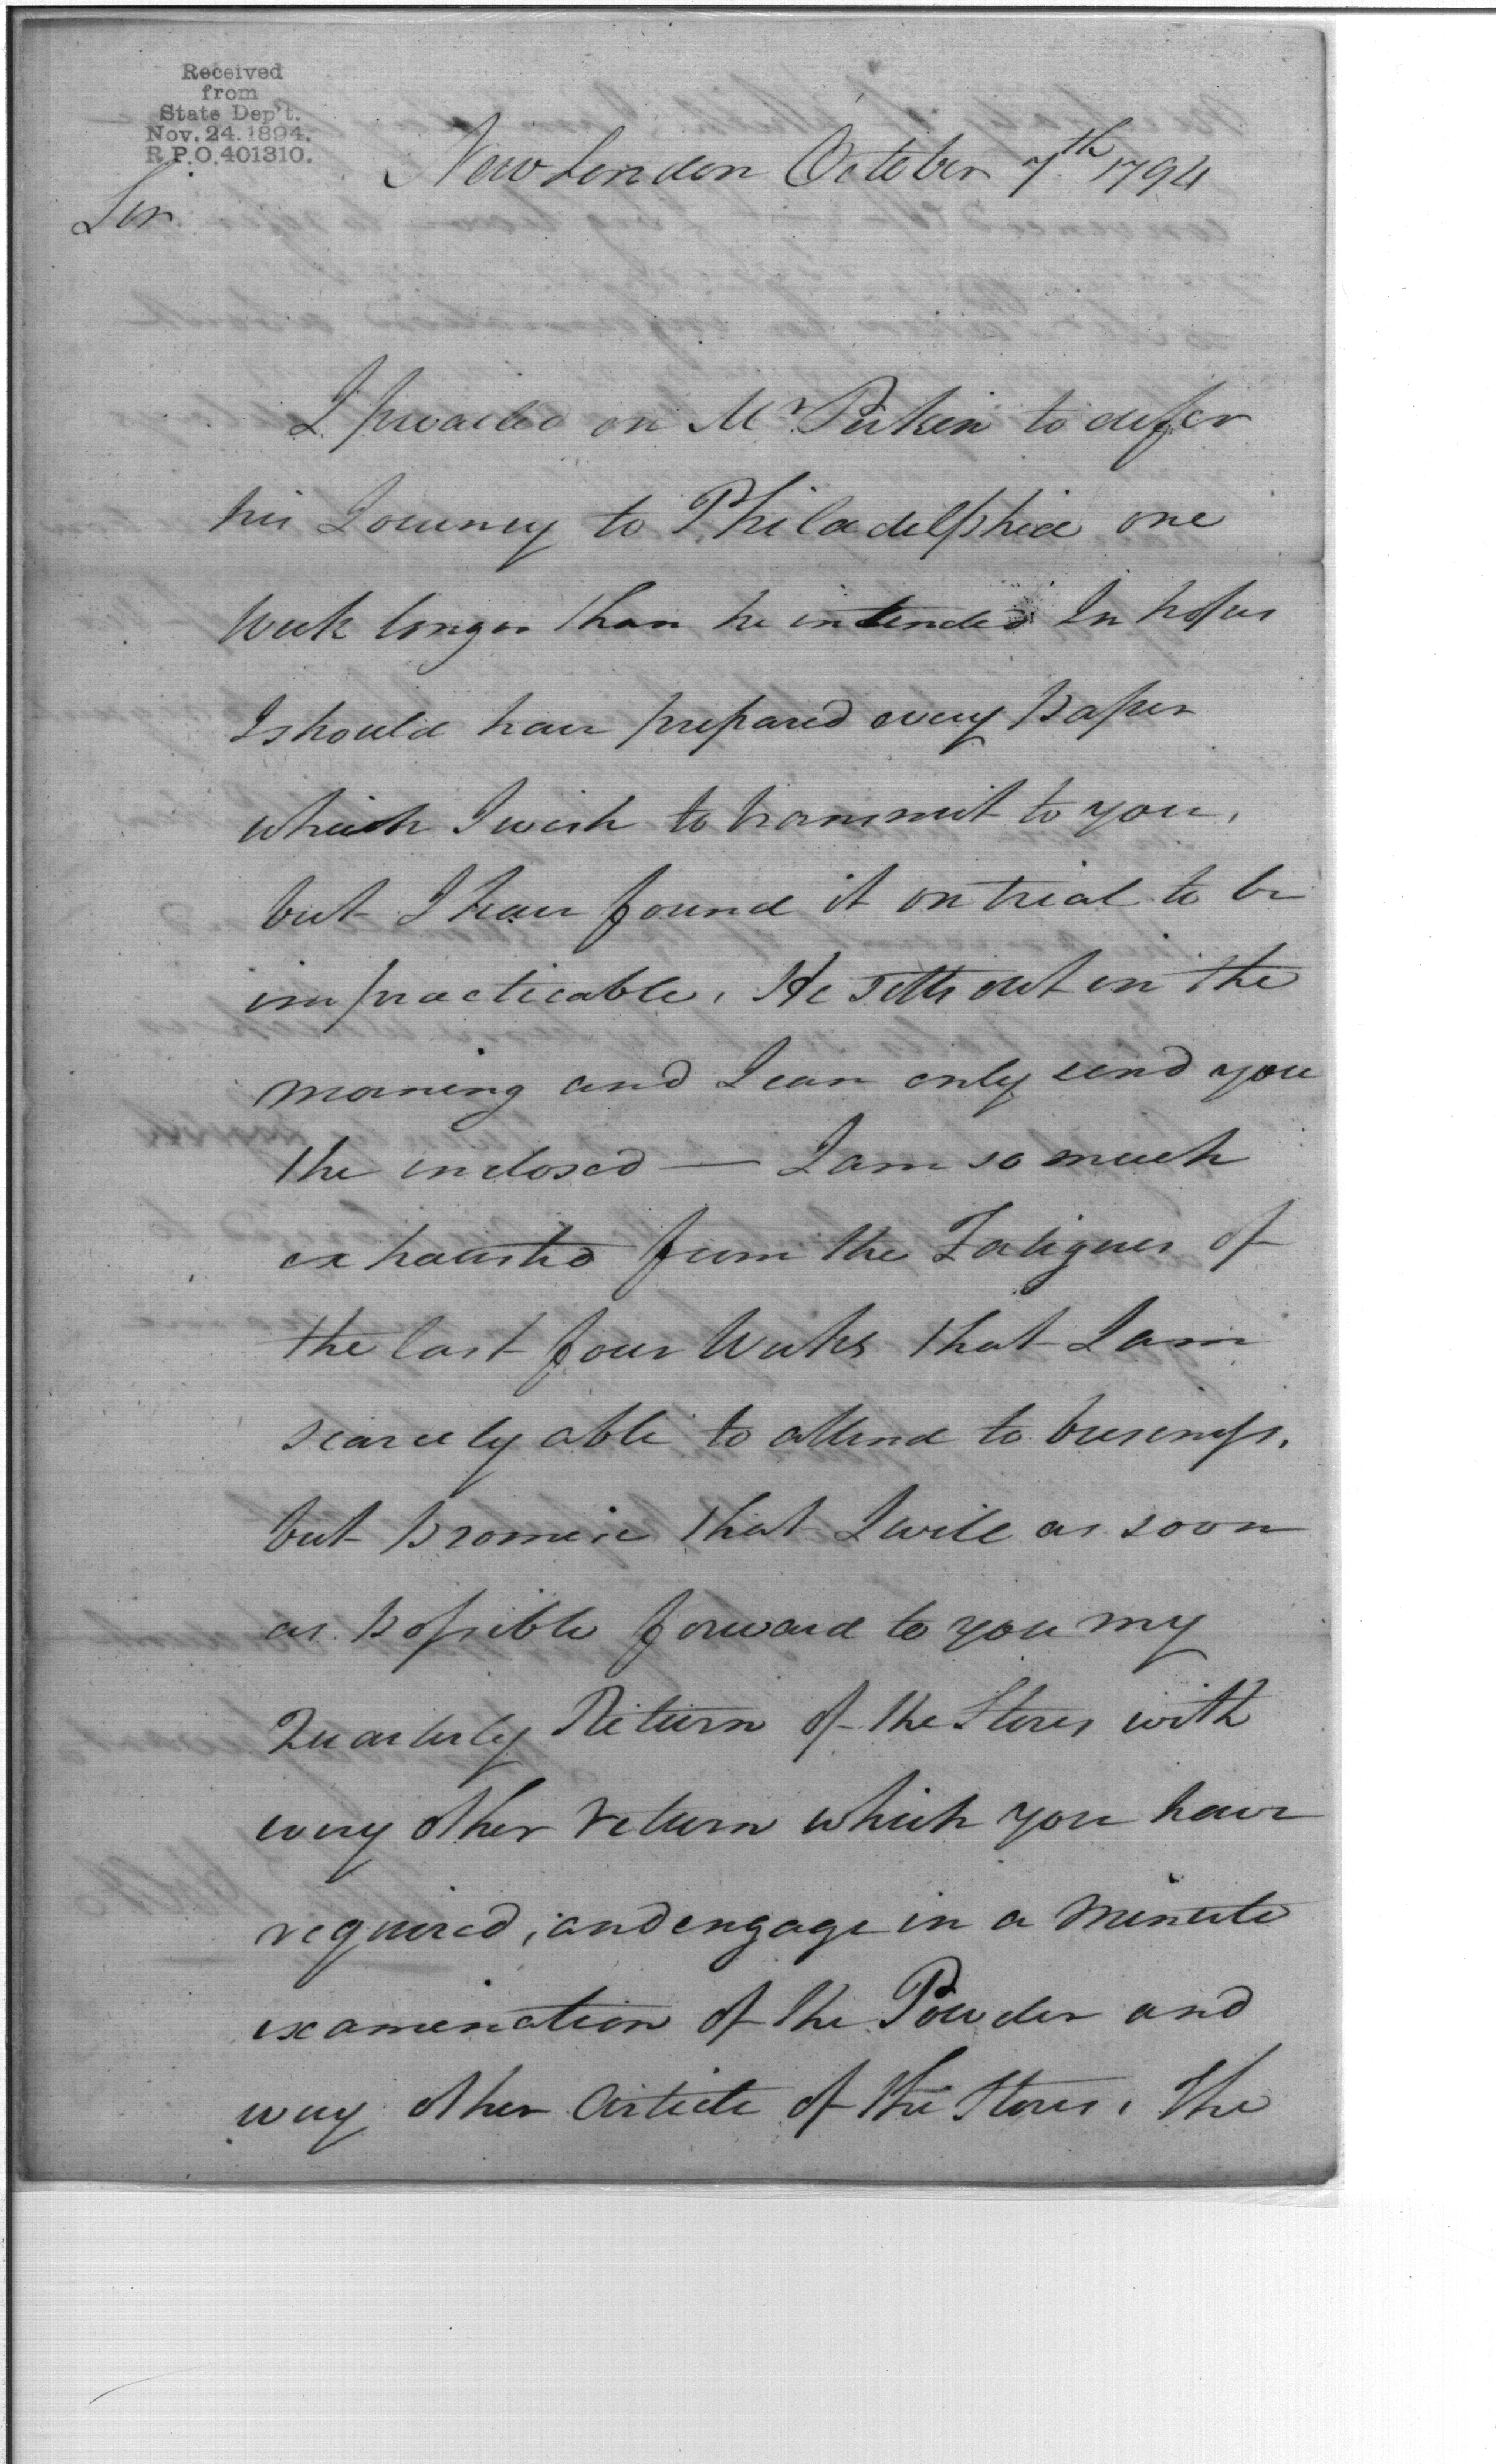 Received
from
State Dep't.
Nov. 24. 1894.
R.P.O. 401310.
New London October 7th 1794
Sir
I prevailed on Mr Perkin to defer
his Journey to Philadelphia one
Week longer than he intended In hopes
I should have prepared every paper
which I wish to transmit to you,
but I have found it on trial to be
impracticable. He setts out in the
morning and I can only send you
the inclosed — I am so much
exhausted from the Fatigues of
the last four Weeks that I am
scarcely able to attend to business,
but promise that I will as soon
as possible forward to you my
Quarterly Return of the Stores with
every other return which you have
required, and engage in a minute
examination of the Powder and
every other Article of the Stores. The